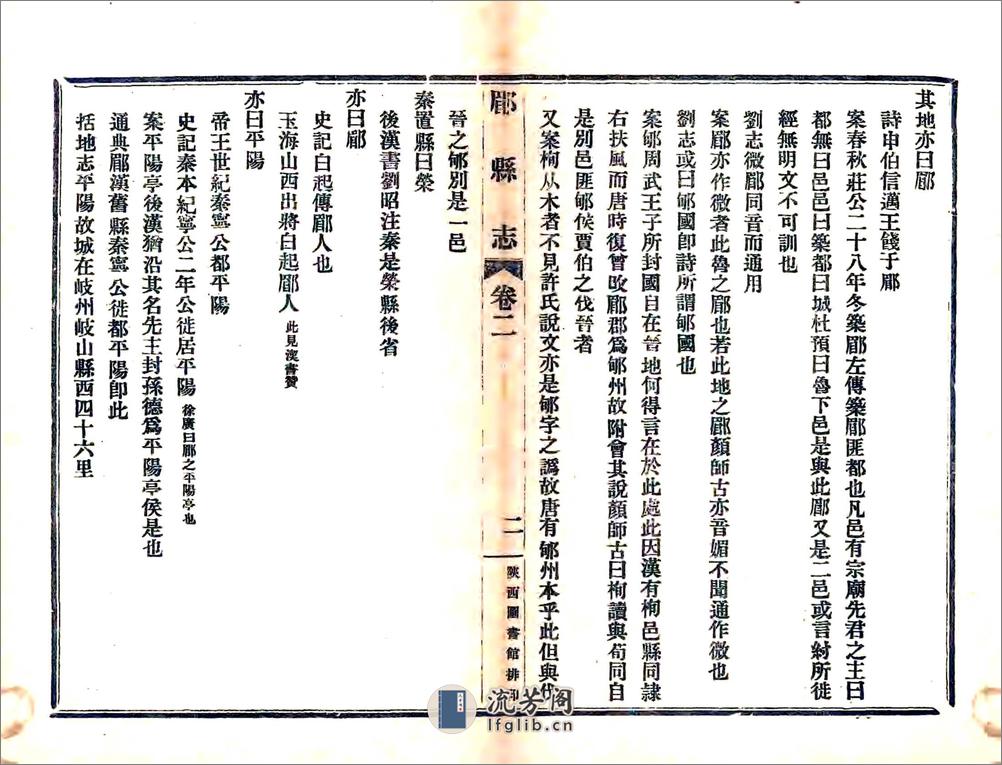 其地亦曰郿
詩申伯信邁王餞于郿
案春秋莊公二十八年冬築郿左傳築郿匪都也凡邑有宗廟先君之主曰
都無曰邑邑曰築都曰城杜預曰魯下邑是與此郿又是二邑或言紂所徙
經無明文不可訓也
劉志微郿同音而通用
案郿亦作微者此魯之郿也若此地之郿顏師古亦音媚不聞通作微也
劉志或曰郇國卽詩所謂郇國也
案郇周武王子所封國自在晉地何得言在於此處此因漢有栒邑縣同隷
右扶風而唐時復曾改郿郡爲郇州故附會其說顏師古曰栒讀與荀同自
是別邑匪郇侯賈伯之伐晉者
又案栒从木者不見許氏說文亦是郇字之譌故唐有郇州本乎此但與伐
郿縣志
卷二
二
陝西圖書館排印
晉之郇別是一邑
秦置縣曰𣲖
後漢書劉昭注秦是榮縣後省
亦曰郿
史記白起傳郿人也
玉海山西出將白起郿人 此見漢書贊
亦曰平陽
帝王世紀秦寧公都平陽
史記秦本紀寧公二年公徙居平陽 徐廣曰郿之平陽亭也
案平陽亭後漢猶沿其名先主封孫德爲平陽亭侯是也
通典郿漢舊縣秦寧公徙都平陽卽此
括地志平陽故城在岐州岐山縣西四十六里
流芳阁
lfglib.cn